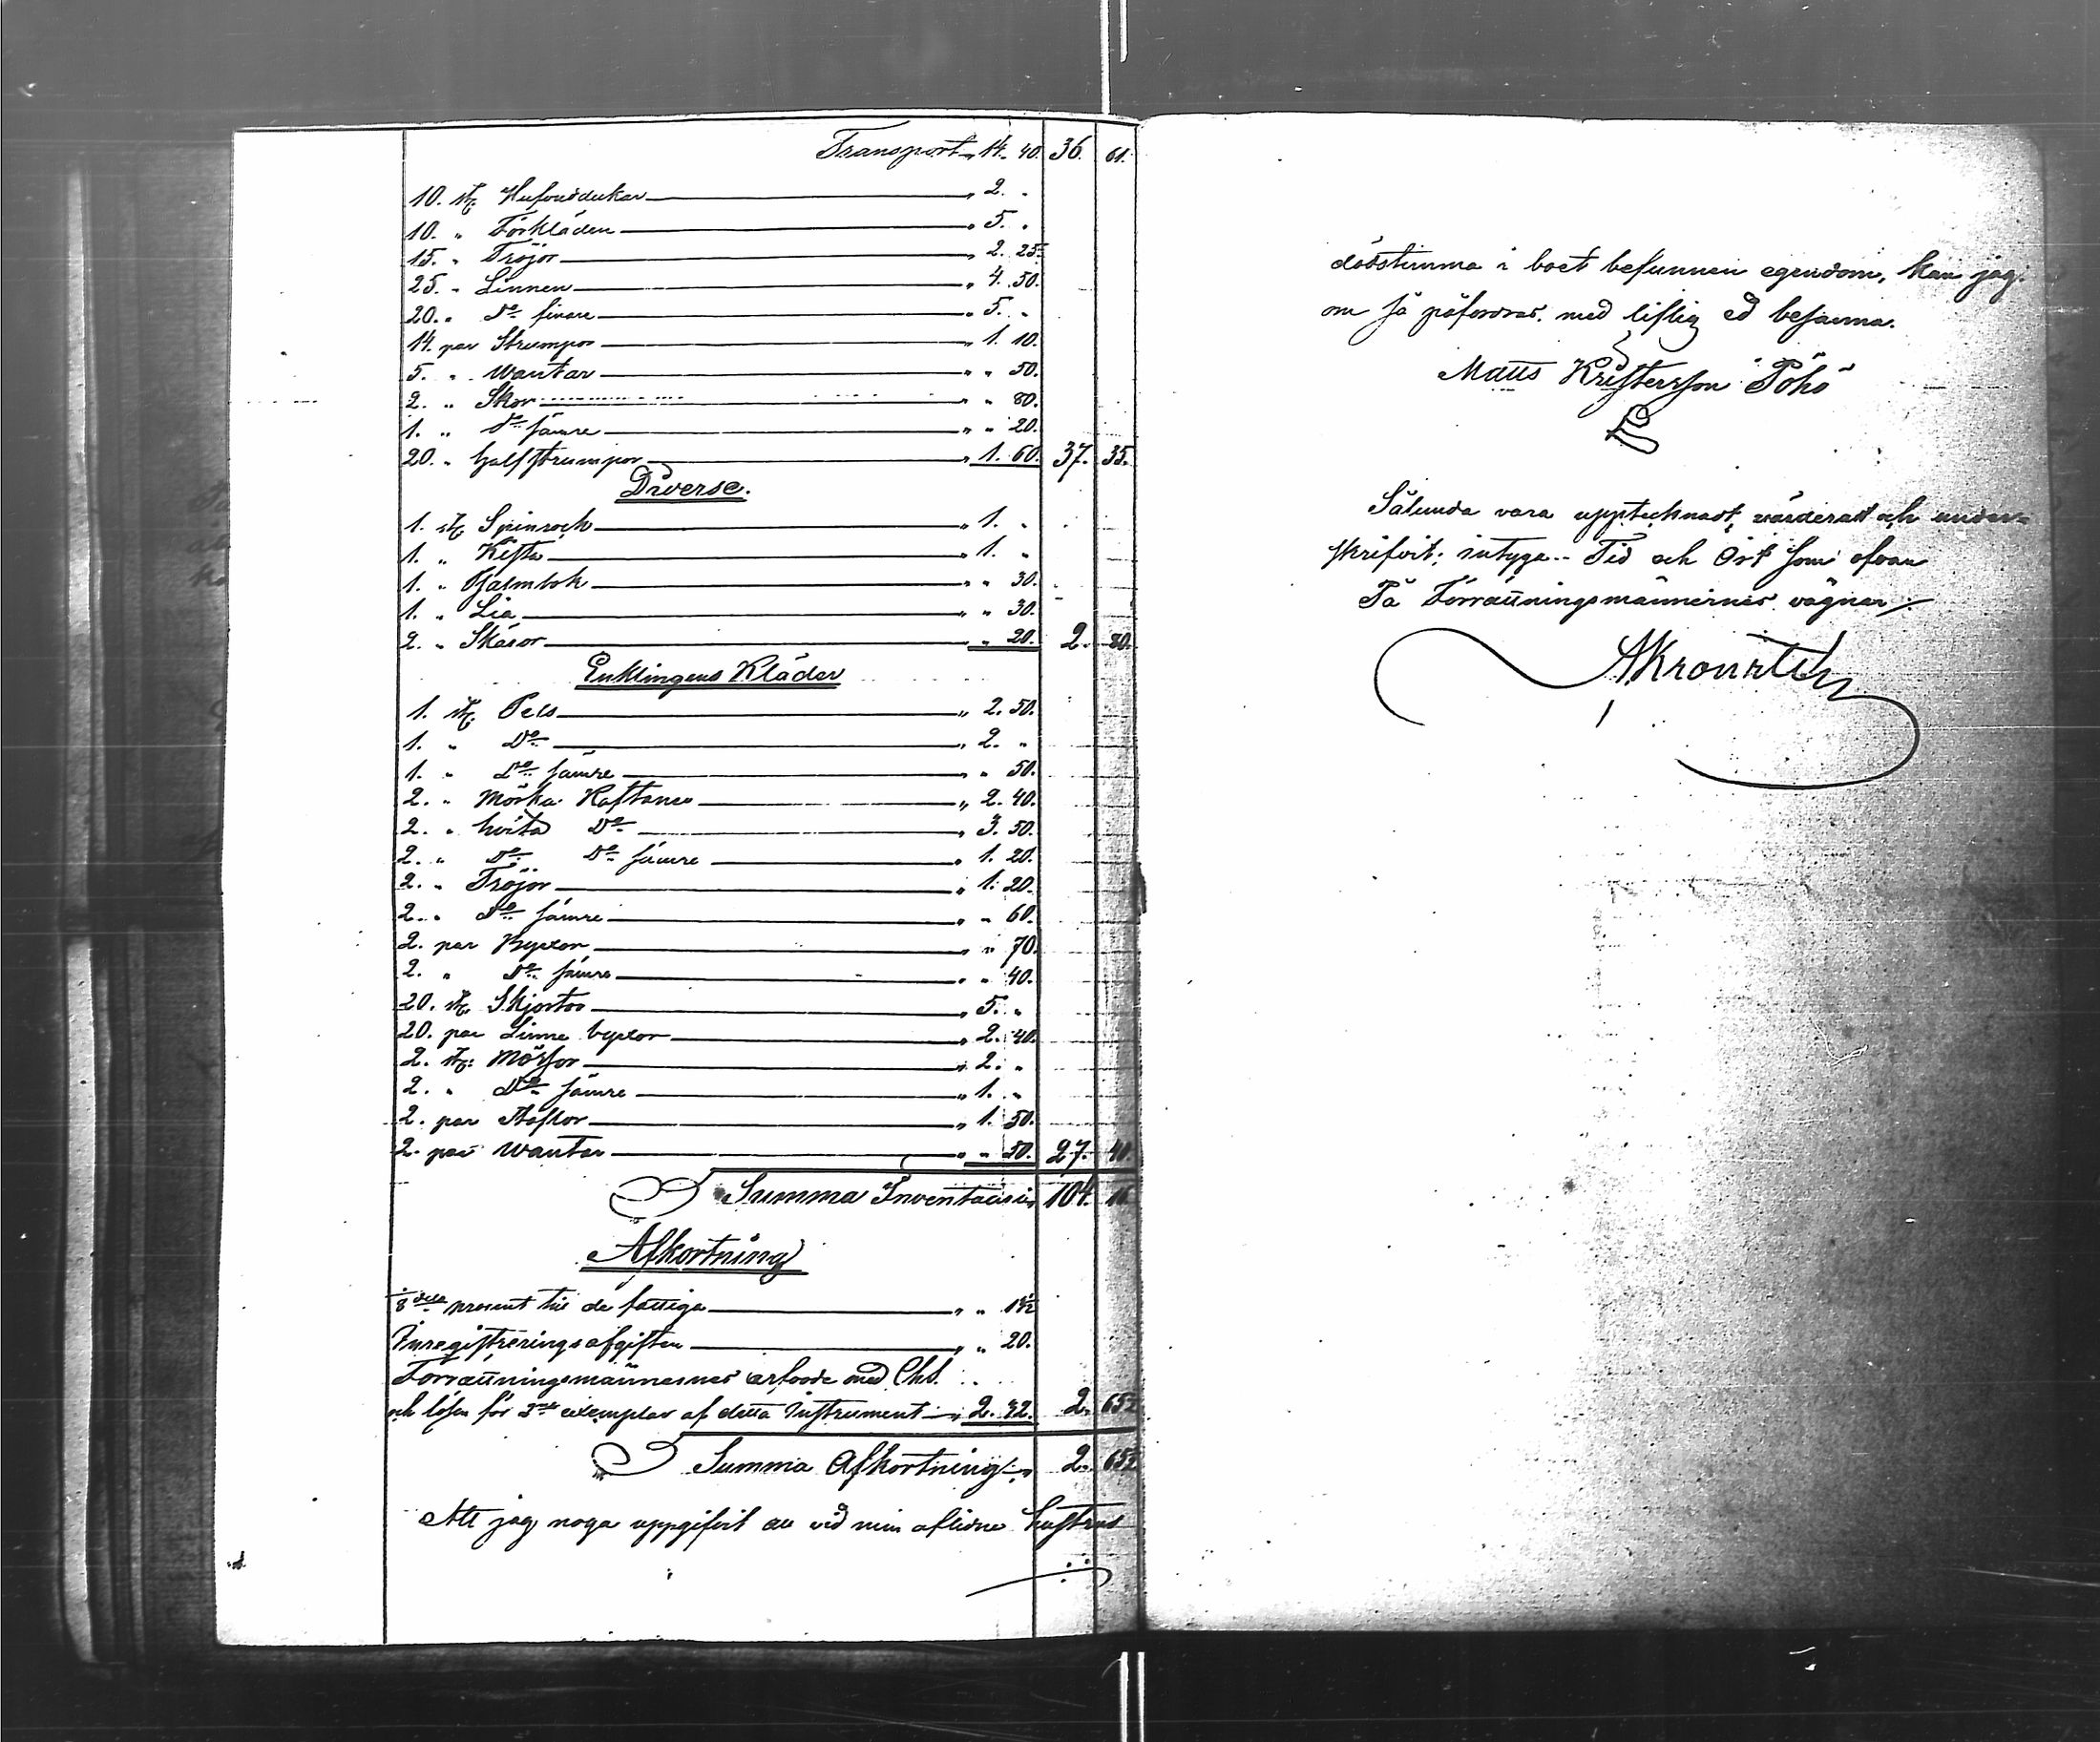 Transport „ 14. 40. 36. 61.
10. st. Hufvuddukar „ 2. „
10. „ Förkläden „ 5. „
15. „ Tröjor „ 2. 25.
25. „ Linnen „ 4. 50.
20. „ Do finare „ 5. „
14. par Strumpor „ 1. 10.
5. „ Wantar „ „ 50.
2. „ Skor „ „ 80.
1. „ Do sämre „ „ 20.
20. „ halfstrumpor „ 1. 60. 37. 35.
Diverse.
1. st. Spinrock „ 1. „
1. „ Kista „ 1. „
1. „ Psalmbok „ „ 30.
1. „ Lia „ „ 30.
2. „ Skäror „ „ 20. 2. 80.
Enklingens Kläder
1. st. Pels „ 2. 50.
1. „ Do „ 2. „
1. „ Do sämre „ „ 50.
2. „ Mörka Kaftaner „ 2. 40.
2. „ hvita Do „ 3. 50.
2. „ Do Do sämre „ 1. 20.
2. „ Tröjor „ 1. 20.
2. „ Do sämre „ „ 60.
2. par Byxor „ „ 70.
2. „ Do sämre „ „ 40.
20. st. Skjortor „ 5. „
20. par Linne byxor „ 2. 40.
2. st. Mössor „ 2. „
2. „ Do sämre „ 1. „
2. par Stöflor „ 1. 50.
2. par Wantar „ „ 50. 27. 40.
Summa Inventarii 104. 16.
Afkortning
1/8 dels procent till de fattiga „ „ 1 1/2
Inregistreringsafgiften „ „ 20.
Förrättningsmännernes arfvode med Chs.
och lösen för 2ne exemplar af detta Instrument „ 2. 32. 2. 65 1/2
Summa Afkortning „ 2. 65 1/2
Att jag noga uppgifvit all vid min aflidne hustrus
dödstimma i boet befunnen egendom, kan jag
om så påfordras med liflig ed besanna.
Matts Kristersson Pöhö
Sålunda vara upptecknadt, värderadt och under-
skrifvit; intyga. Tid och Ort som ofvan
På Förrättningsmännernes vägnar